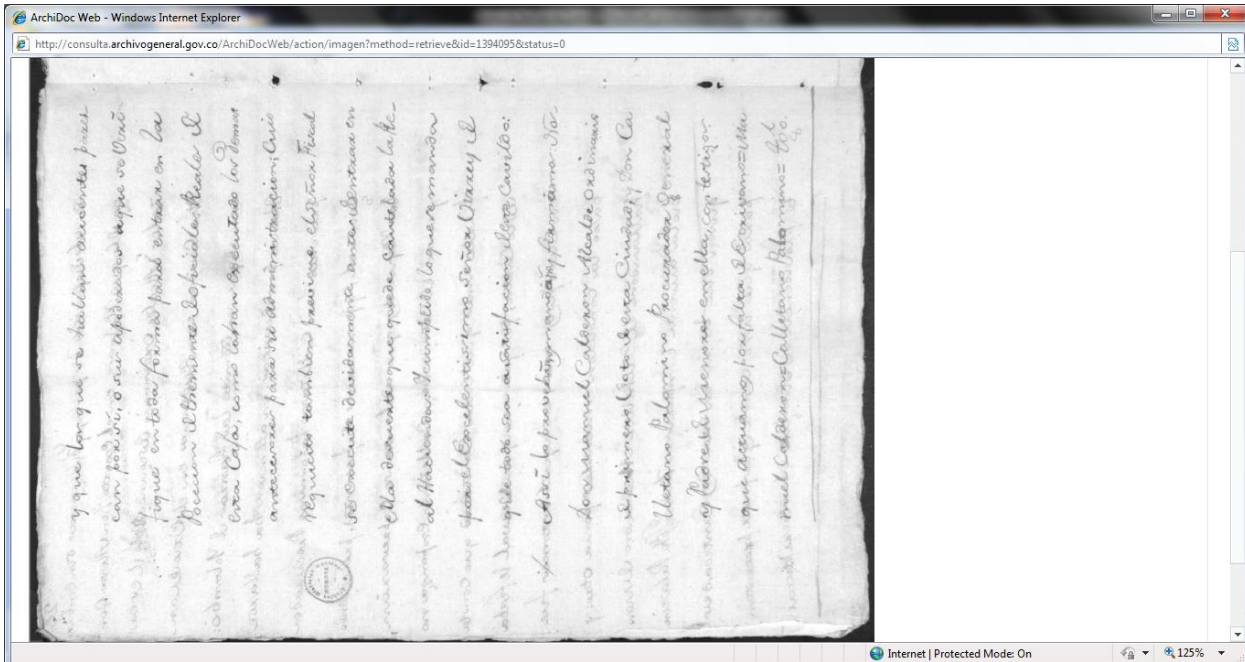 ArchiDoc Web - Windows Internet Explorer
http://consulta.archivogeneral.gov.co/ArchiDocWeb/action/imagen?method=retrieve&id=1394095&status=0
y que los que se hallan ausentes para
can por si, o su apoderado a que se
fique en toda forma para entrar en la
el Theniente Rl
esta Caja, como lo han executado los demas
antecesores para su administracion; Cuio
requisito tambien previene el señor Fiscal
se execute devidamente, antes de entrar en
ella de suerte que quede cautelada la Re-
al Hacienda, y cumplido lo que se manda
por el Excelentisimo señor Virrey, y
que todo sea a satisfacion de este Cavildo:
Assi lo proveieron, mandaron y firmaron No-
Don Manuel Calderon Alcalde ordinario
de primero Voto de esta Ciudad, y Don Ca
lletano Palomino Procurador General
y Padre de menores en ella, con testigos
que actuamos por falta de Escrivano = Ma
nuel Calderon = Calletano Palomino = tgo.
Internet | Protected Mode: On
125%